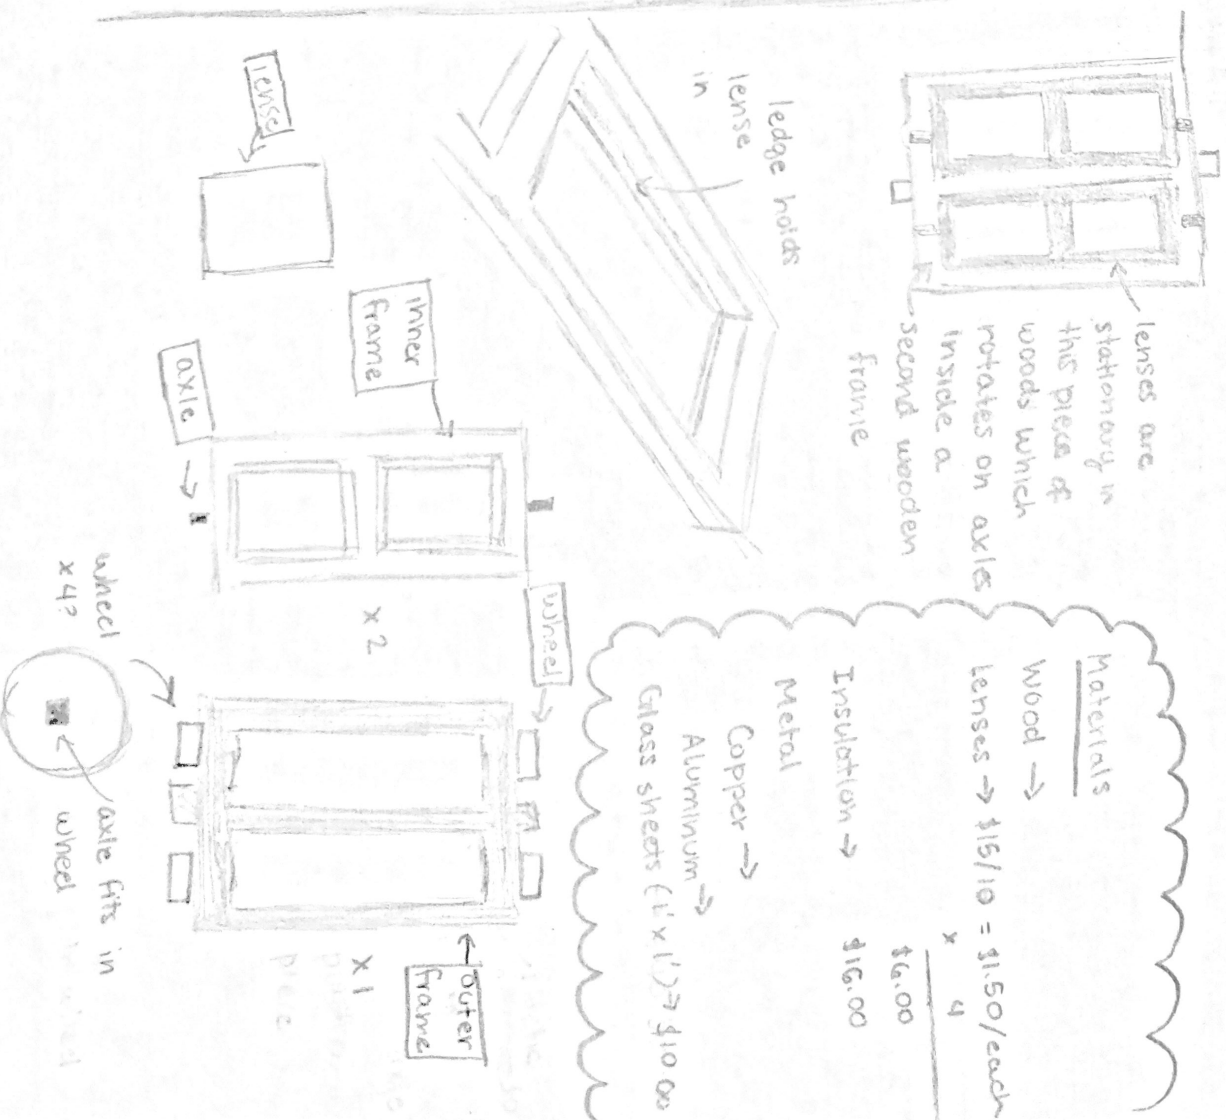 lenses are
stationary in
this piece of
woods which
rotates on axles
inside a
second wooden
frame
ledge holds
lense
in
lense
inner
frame
axle
x 2
wheel
wheel
x 4?
axle fits in
wheel
x 1
outer
frame
piece
Materials
Wood →
Lenses → $15/10 = $1.50/each
x 4
$6.00
Insulation → $16.00
Metal
Copper →
Aluminum →
Glass sheets (1' x 1') → $10.00